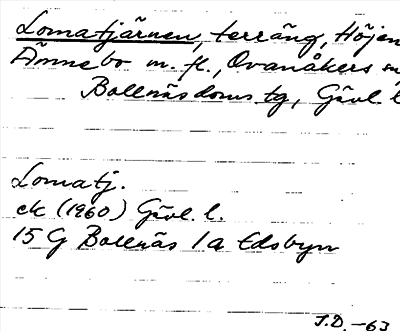 Lomatjärnen, terräng, Höjen
Ämnebo m. fl., Ovanåkers
Bollnäs doms. tg, Gävl. l
Lomatj.
ek (1960) Gävl. l.
15 G Bollnäs 1a Edsbyn
J.D. -63